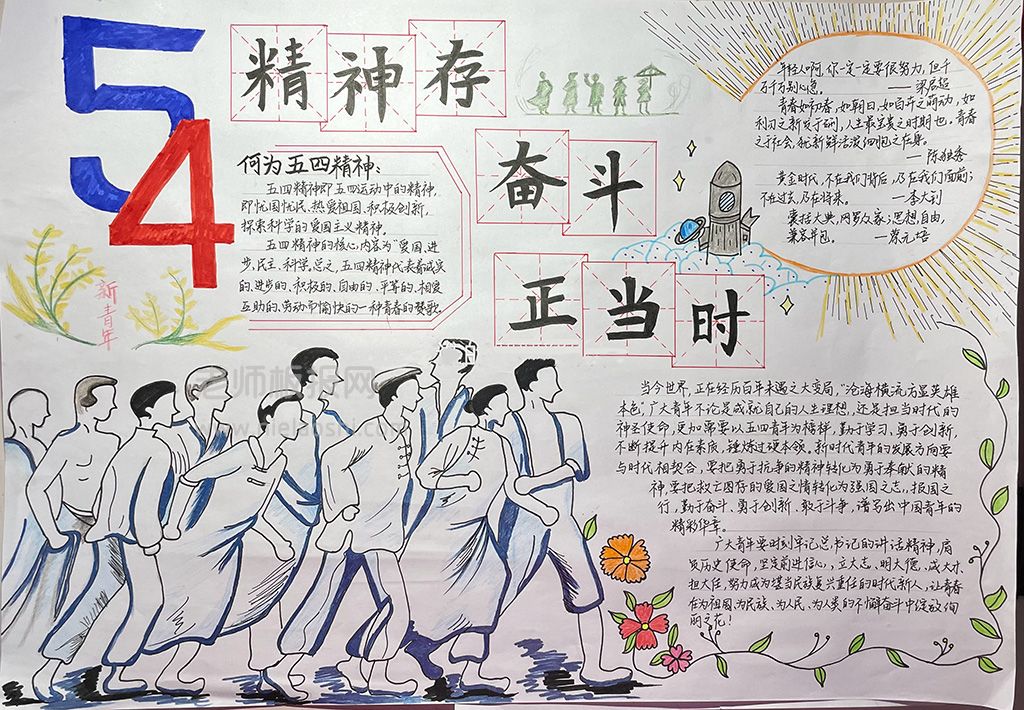 54
精神存
奋斗
正当时
新青年
何为五四精神:
五四精神即五四运动中的精神,
即忧国忧民、热爱祖国、积极创新,
探索科学的爱国主义精神。
五四精神的核心内容为“爱国、进
步、民主、科学。总之,五四精神代表着诚实
的、进步的、积极的、自由的、平等的、相爱
互助的、劳动而愉快的一种青春的赞歌。
年轻人啊,你一定一定要很努力,但千
万千万别心急。 ——梁启超
青春如初春,如朝日,如百卉之萌动,如
利刃之新发于硎,人生最宝贵之时期也。青春
之于社会,犹新鲜活泼细胞之在身。
——陈独秀
黄金时代,不在我们背后,乃在我们面前;
不在过去,乃在将来。 ——李大钊
囊括大典,网罗众家;思想自由,
兼容并包。 ——蔡元培
当今世界,正在经历百年未遇之大变局,“沧海横流方显英雄
本色”,广大青年不论是成就自己的人生理想,还是担当时代的
神圣使命,更加需要以五四青年为榜样,勤于学习、勇于创新,
不断提升内在素质,锤炼过硬本领。新时代青年的发展方向要
与时代相契合,要把勇于抗争的精神转化为勇于奉献的精
神,要把救亡图存的爱国之情转化为强国之志,报国之
行,勤于奋斗、勇于创新、敢于斗争,谱写出中国青年的
精彩华章。
广大青年要时刻牢记总书记的讲话精神,肩
负历史使命,坚定前进信心,立大志、明大德、成大才、
担大任,努力成为堪当民族复兴重任的时代新人,让青春
在为祖国、为民族、为人民、为人类的不懈奋斗中绽放绚
丽之花!
老师板报网